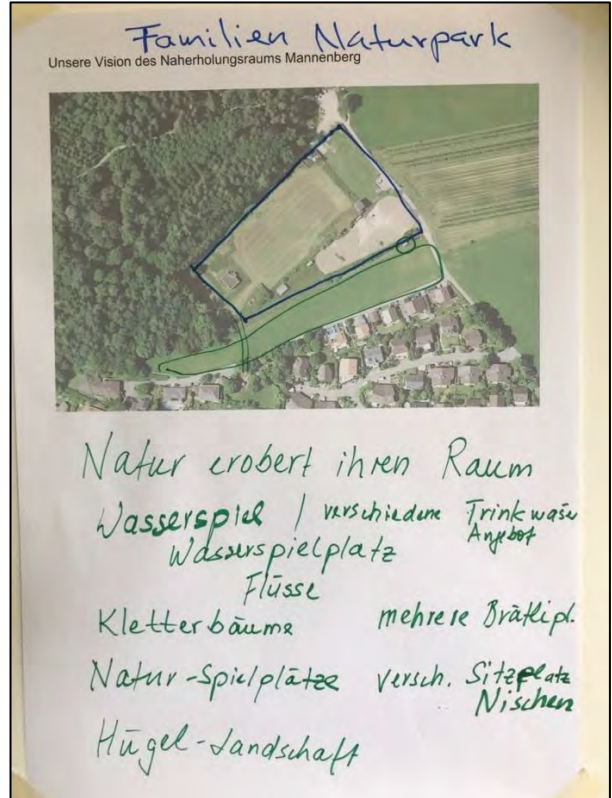 Familien Naturpark
Unsere Vision des Naherholungsraums Mannenberg
Natur erobert ihren Raum
Wasserspiel / verschiedene Trinkwasser
Angebot
Wasserspielplatz
Flüsse
Kletterbäume mehrere Brätlipl.
Natur-Spielplätze versch. Sitzplatz
Nischen
Hügel-Landschaft